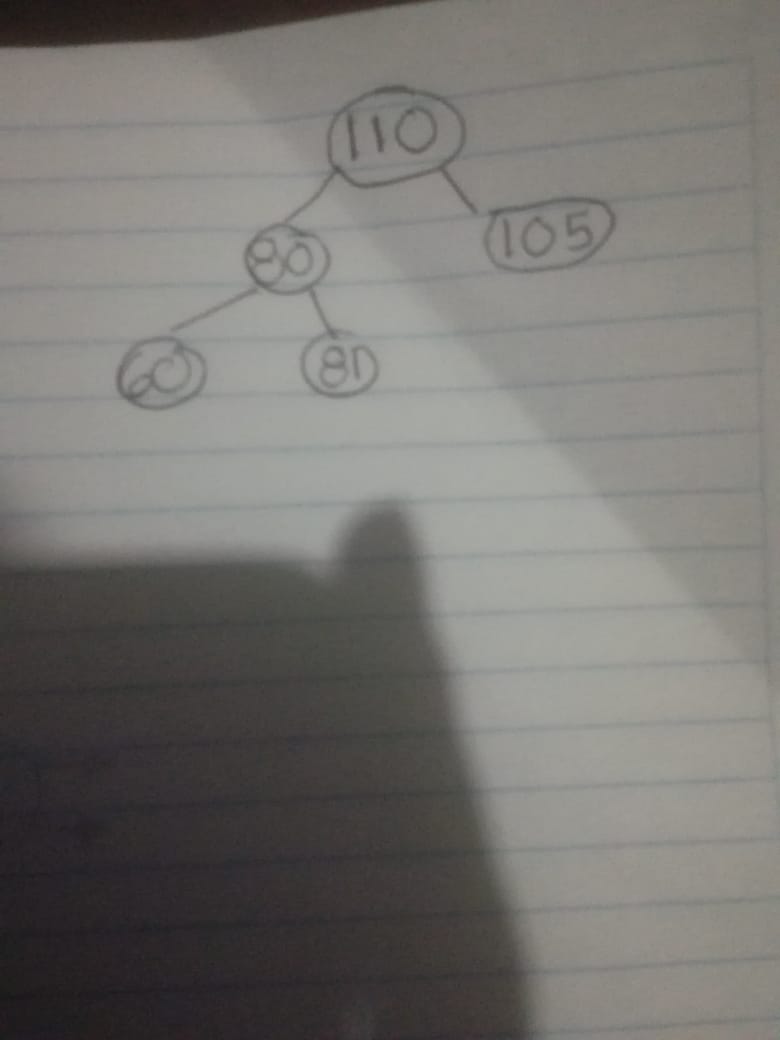 110
80 105
60 80